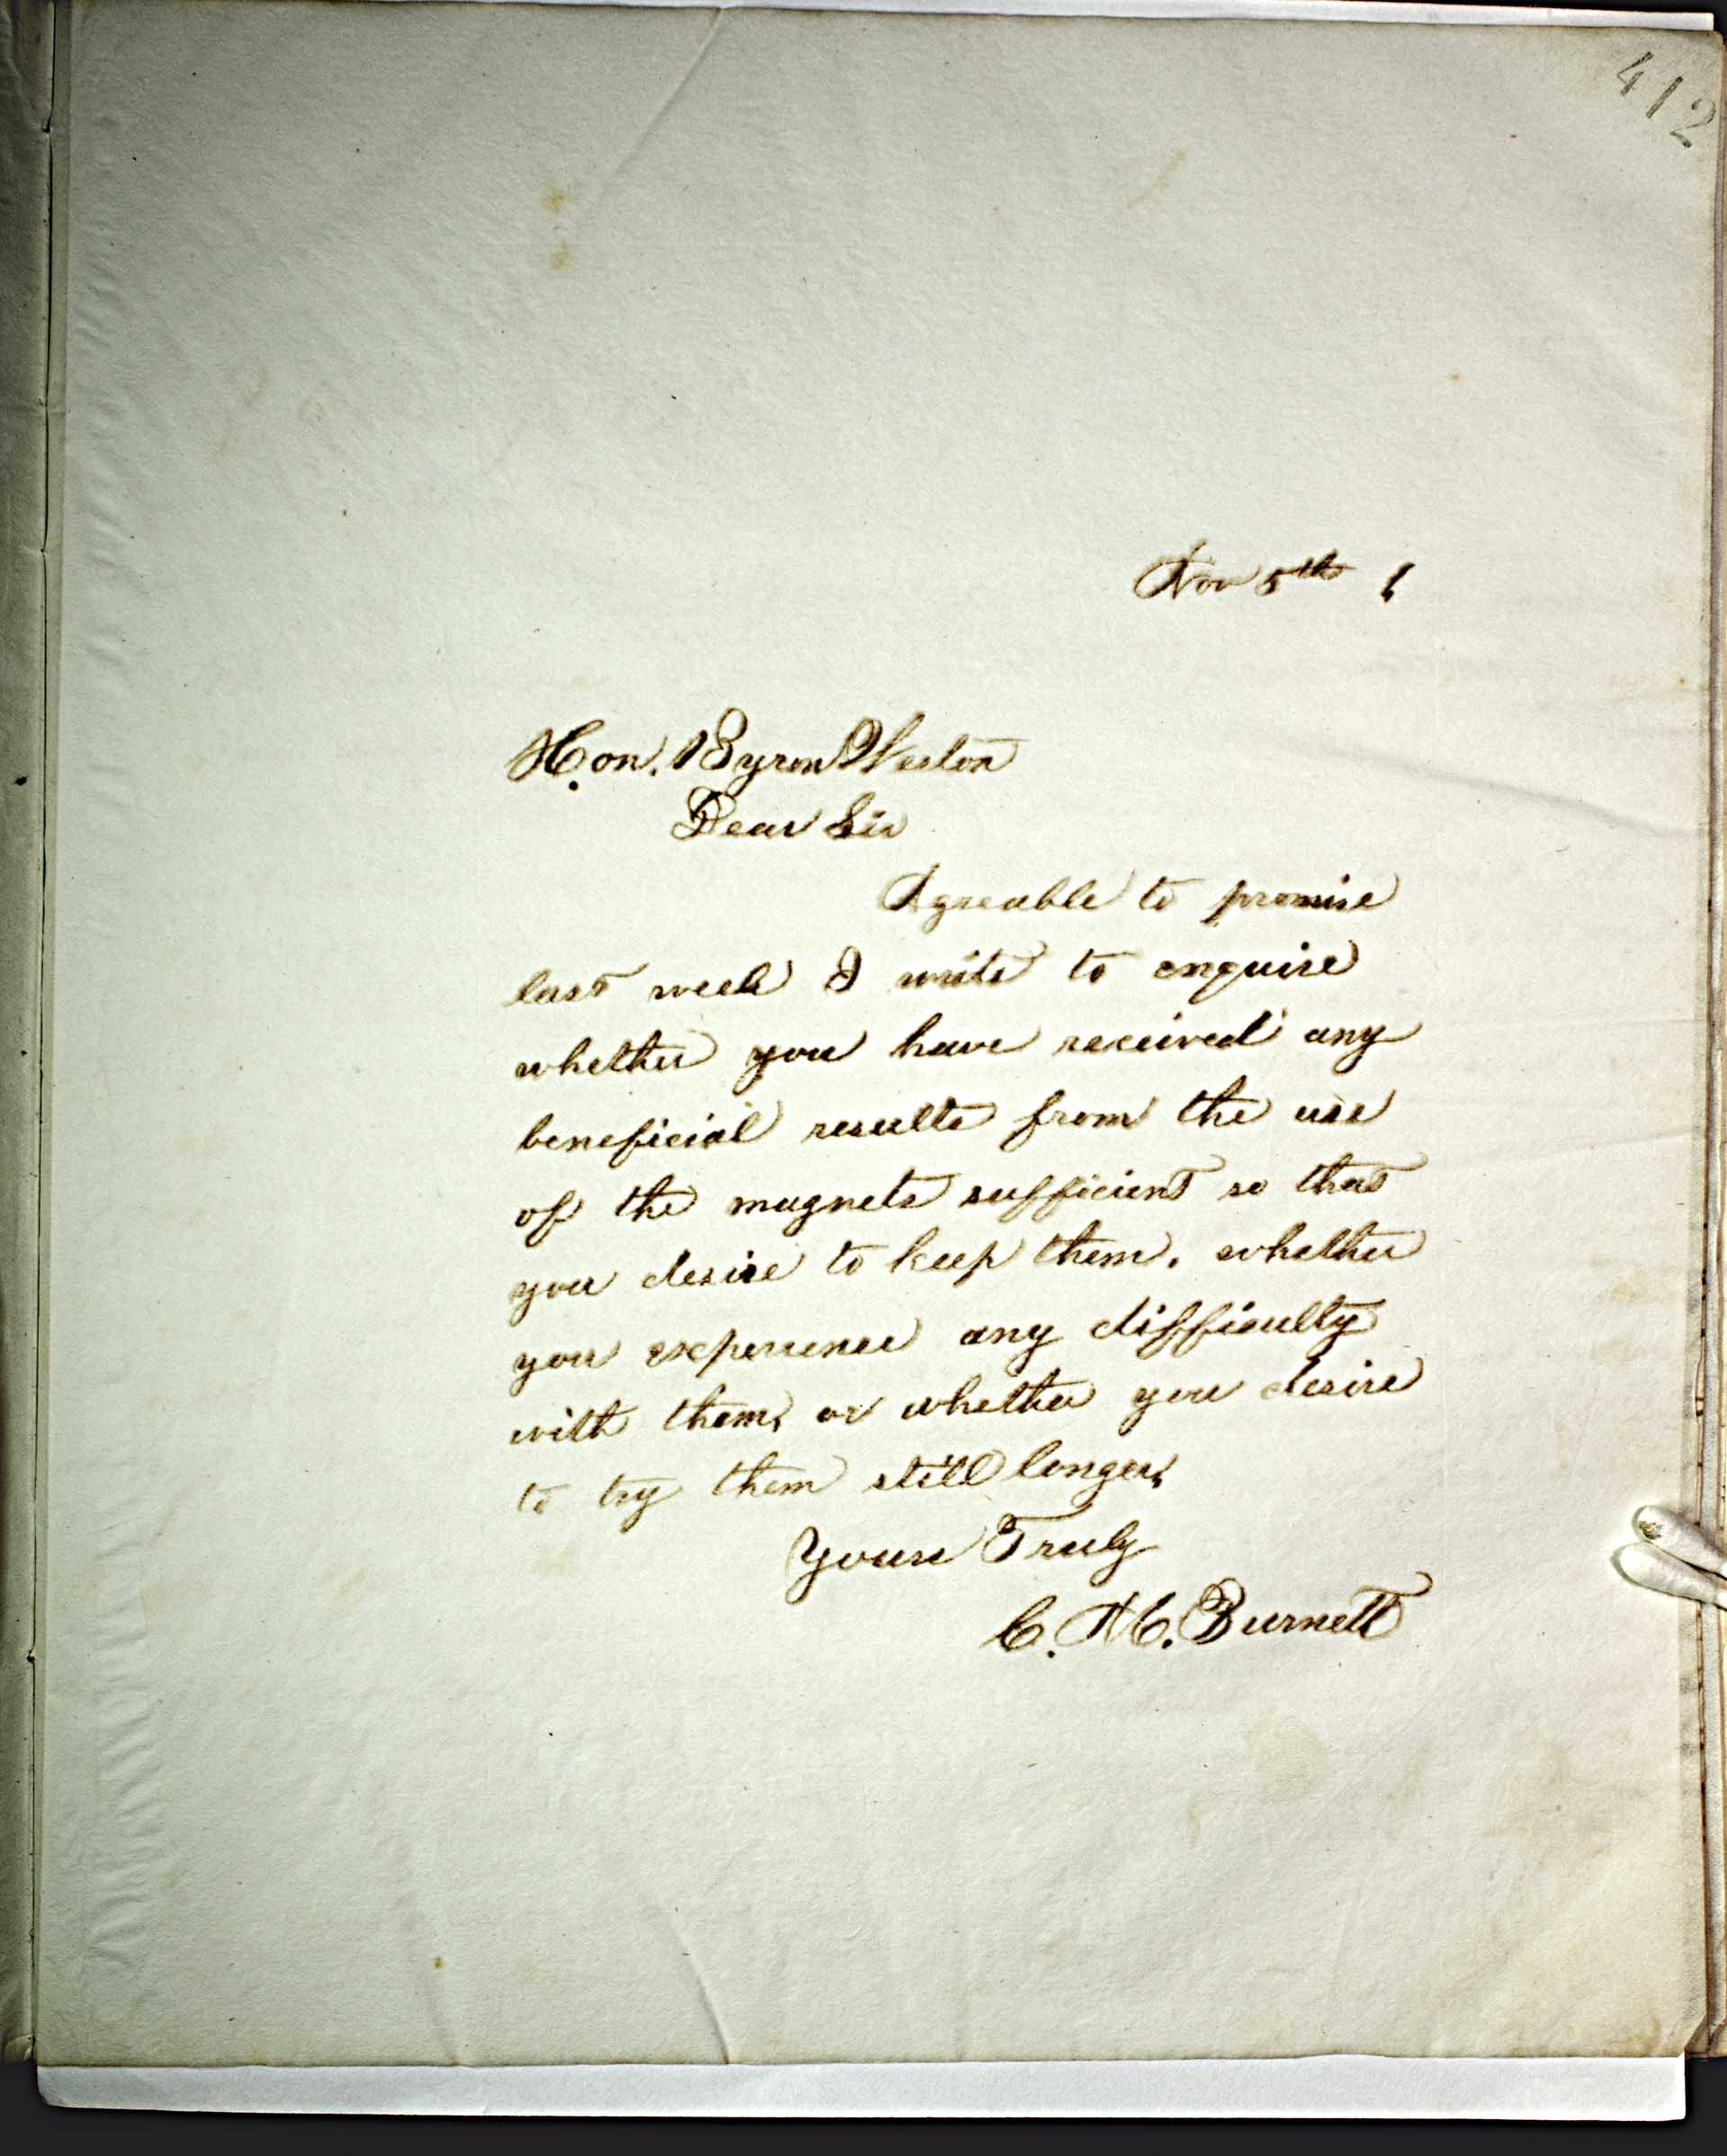 412
Nov 5th
Hon. Byron Weston
Dear Sir
Agreable to promise
last week I write to enquire
whether you have received any
beneficial results from the use
of the magnets sufficient so that
you desire to keep them. whether
you experience any difficulty
with them, or whether you desire
to try them still longer,
Yours Truly
C. H. Burnett